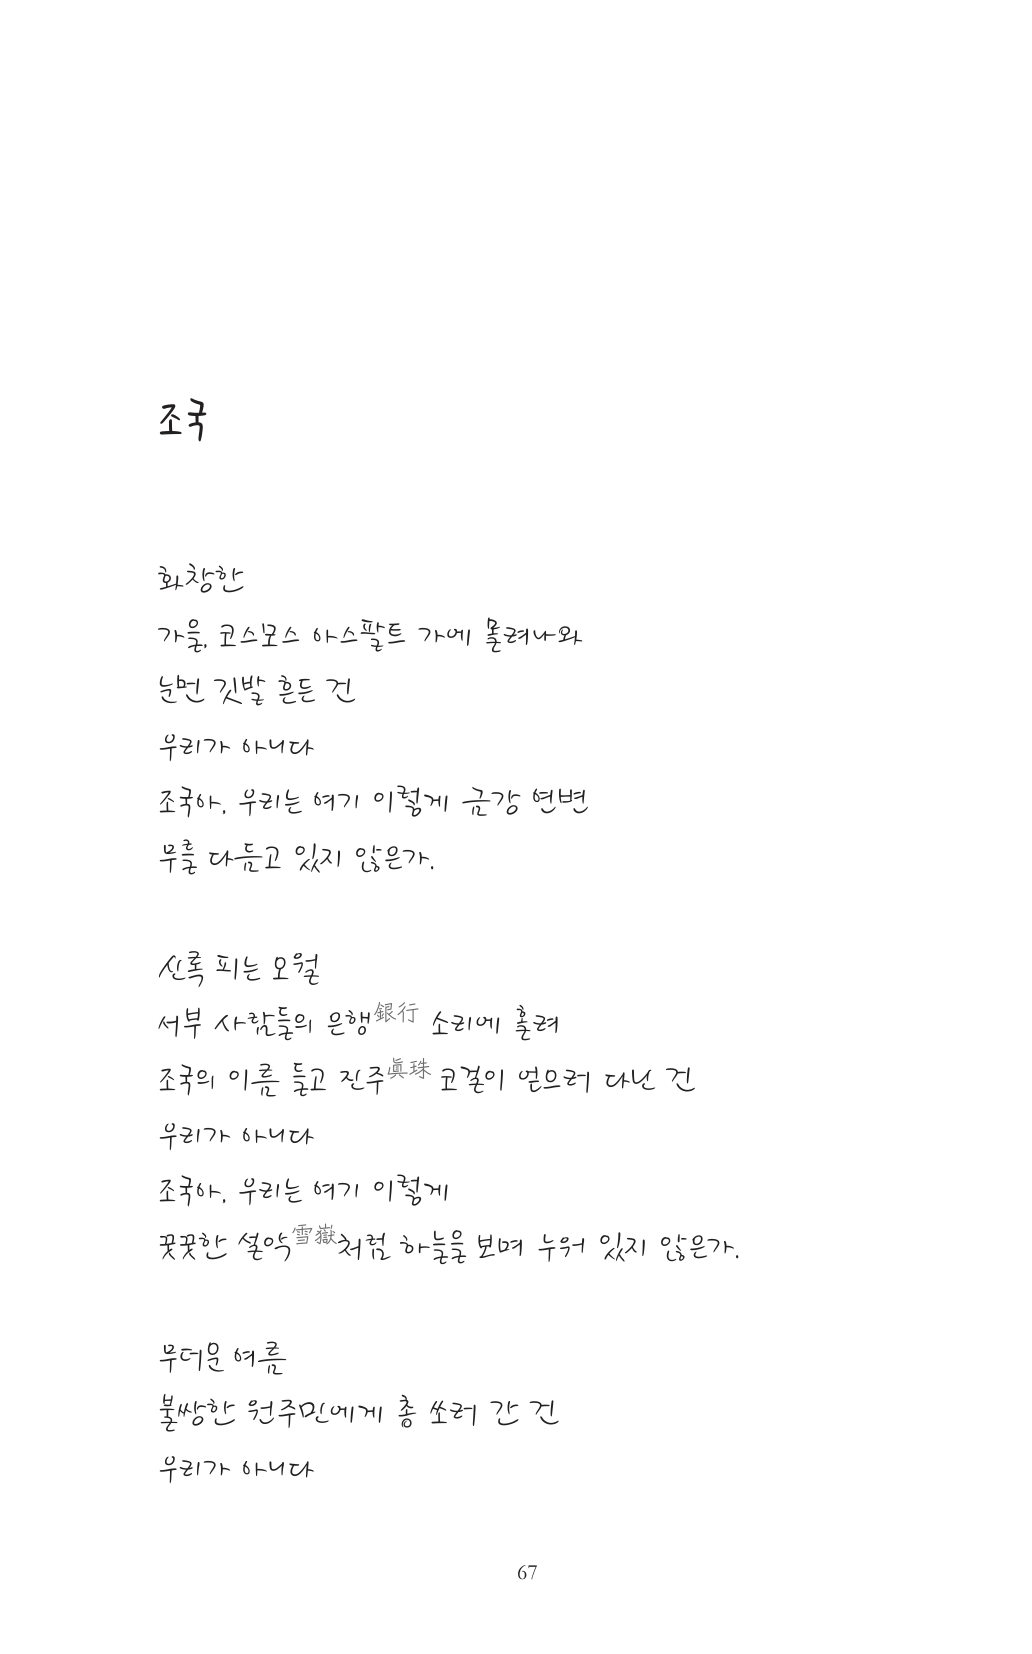 조국
화창한
가을, 코스모스 아스팔트 가에 몰려나와
눈먼 깃발 흔든 건
우리가 아니다
조국아, 우리는 여기 이렇게 금강 연변
무를 다듬고 있지 않은가.
신록 피는 오월
서부 사람들의 은행銀行 소리에 홀려
조국의 이름 들고 진주眞珠 코걸이 얻으러 다닌 건
우리가 아니다
조국아, 우리는 여기 이렇게
꿋꿋한 설악雪嶽처럼 하늘을 보며 누워 있지 않은가.
무더운 여름
불쌍한 원주민에게 총 쏘러 간 건
우리가 아니다
67